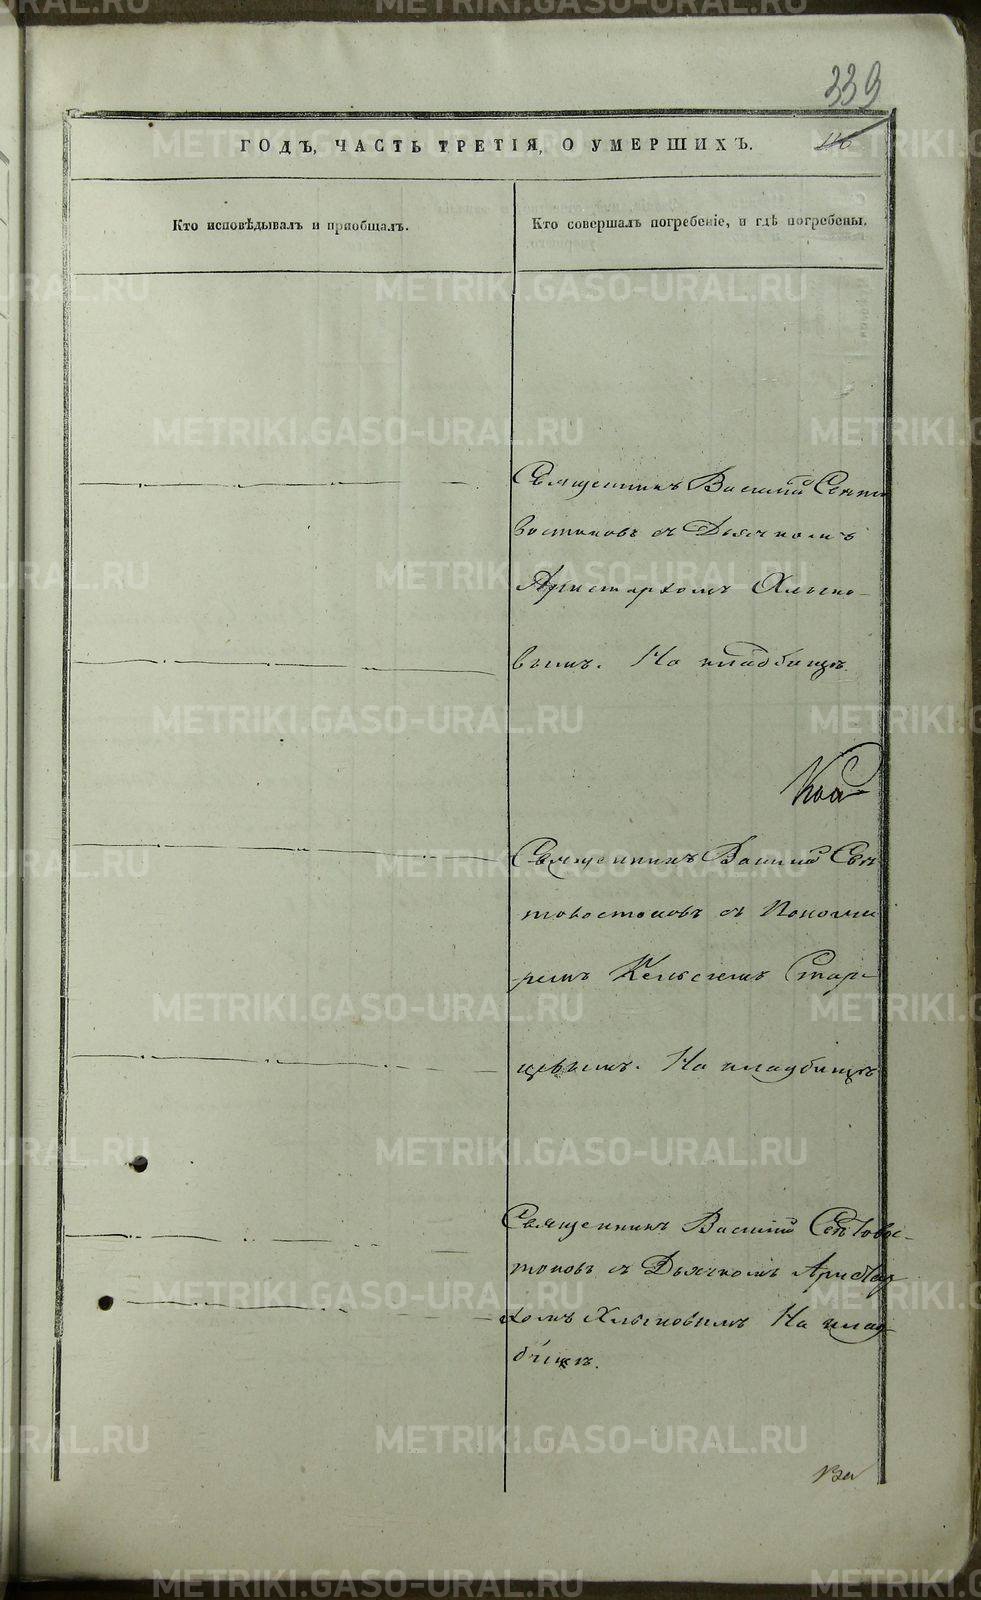 339
ГОДЪ, ЧАСТЬ ТРЕТІЯ, О УМЕРШИХЪ.
Кто исповѣдывалъ и пріобщалъ.
Кто совершалъ погребеніе, и гдѣ погребены.
Священникъ Василій Свѣто
востоковъ съ Дьячкомъ
Аристархомъ Хлынов-
вымъ. На кладбищѣ.
Священникъ Василій Свѣ
товостоковъ съ Пономаремъ
ремъ Старцевымъ
цевымъ. На кладбищѣ
Священникъ Василій Свѣтовос-
токовъ съ Дьячкомъ Аристар
хомъ Хлыновымъ На клад-
бищѣ.
METRIKI.GASO-URAL.RU